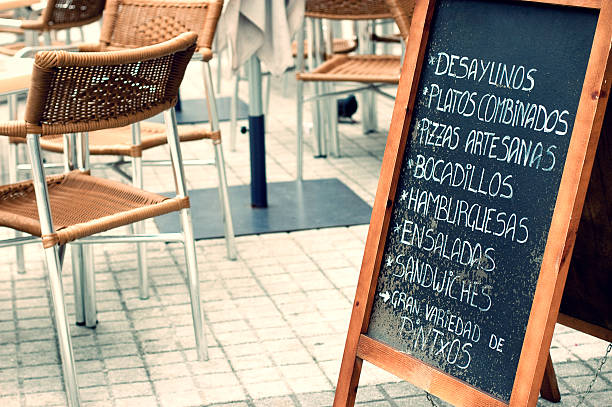 *DESAYUNOS
*PLATOS COMBINADOS
PIZZAS ARTESANAS*
*BOCADILLOS
*HAMBURGUESAS
ENSALADAS
*SANDWICHES
→GRAN VARIEDAD DE
PINTXOS